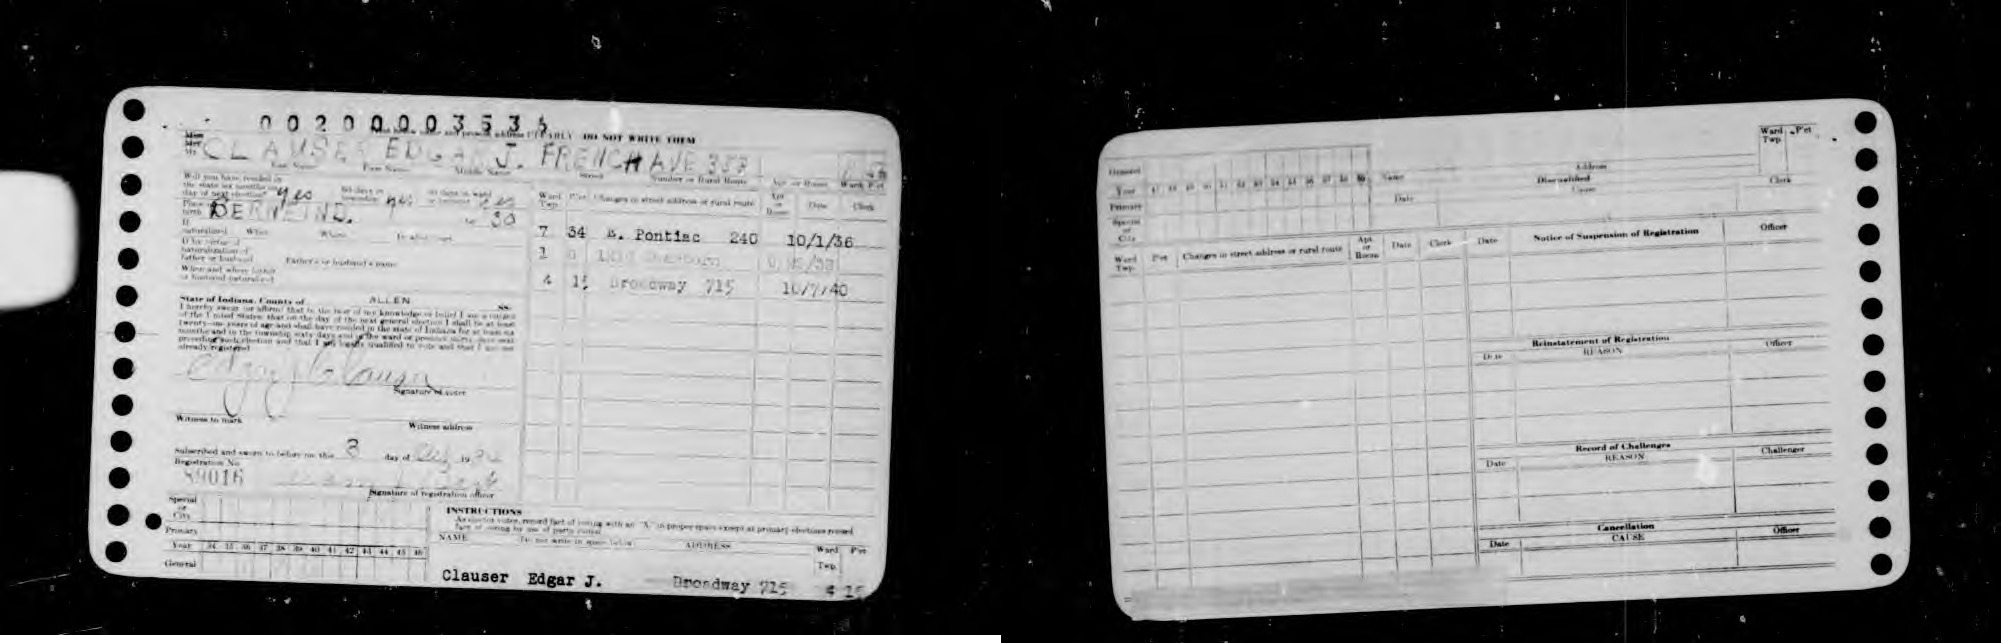 0020000353
DO NOT WRITE THEM
Miss
Mrs
Mr
CLAUSER EDGAR J. FRENCH AVE 353
Last Name First Name Middle Name Street Number or Rural Route Apt or Room Ward P'ct
Will you have resided in
the state six months on
day of next election? yes 60 days in yes 30 days in ward yes
Place of
birth BERNE IND. 30
If
naturalized When Where In what court
If by virtue of
naturalization of
father or husband Father's or husband's name
When and where father
or husband naturalized
Ward Twp. P'ct Changes in street address or rural route Apt. or Room Date Clerk
7 34 E. Pontiac 240 10/1/36
1
4 15 Broadway 715 10/7/40
State of Indiana, County of ALLEN ss.
I hereby swear (or affirm) that to the best of my knowledge or belief I am a citizen
of the United States; that on the day of the next general election I shall be at least
twenty-one years of age and shall have resided in the state of Indiana for at least six
months and in the township sixty days and in the ward or precinct thirty days next
preceding such election and that I am legally qualified to vote and that I am not
already registered
Edgar J Clauser
Signature of voter
Witness to mark Witness address
Subscribed and sworn to before me this 3 day of 19
Registration No.
Signature of registration officer
Special
or
City
Primary
Year 34 35 36 37 38 39 40 41 42 43 44 45 46
General
INSTRUCTIONS
As elector votes, record fact of voting with an "X" in proper space except at primary elections record
fact of voting by use of party initial
NAME Do not write in space below ADDRESS Ward Twp. P'ct
Clauser Edgar J. Broadway 715 4 15
Ward Twp. P'ct
General
Year 47 48 49 50 51 52 53 54 55 56 57 58 59
Primary
Special
or
City
Name Address
Disqualified
Date Cause Clerk
Ward Twp. P'ct Changes in street address or rural route Apt. or Room Date Clerk
Date Notice of Suspension of Registration Officer
Reinstatement of Registration
Date REASON Officer
Record of Challenges
Date REASON Challenger
Cancellation
Date CAUSE Officer